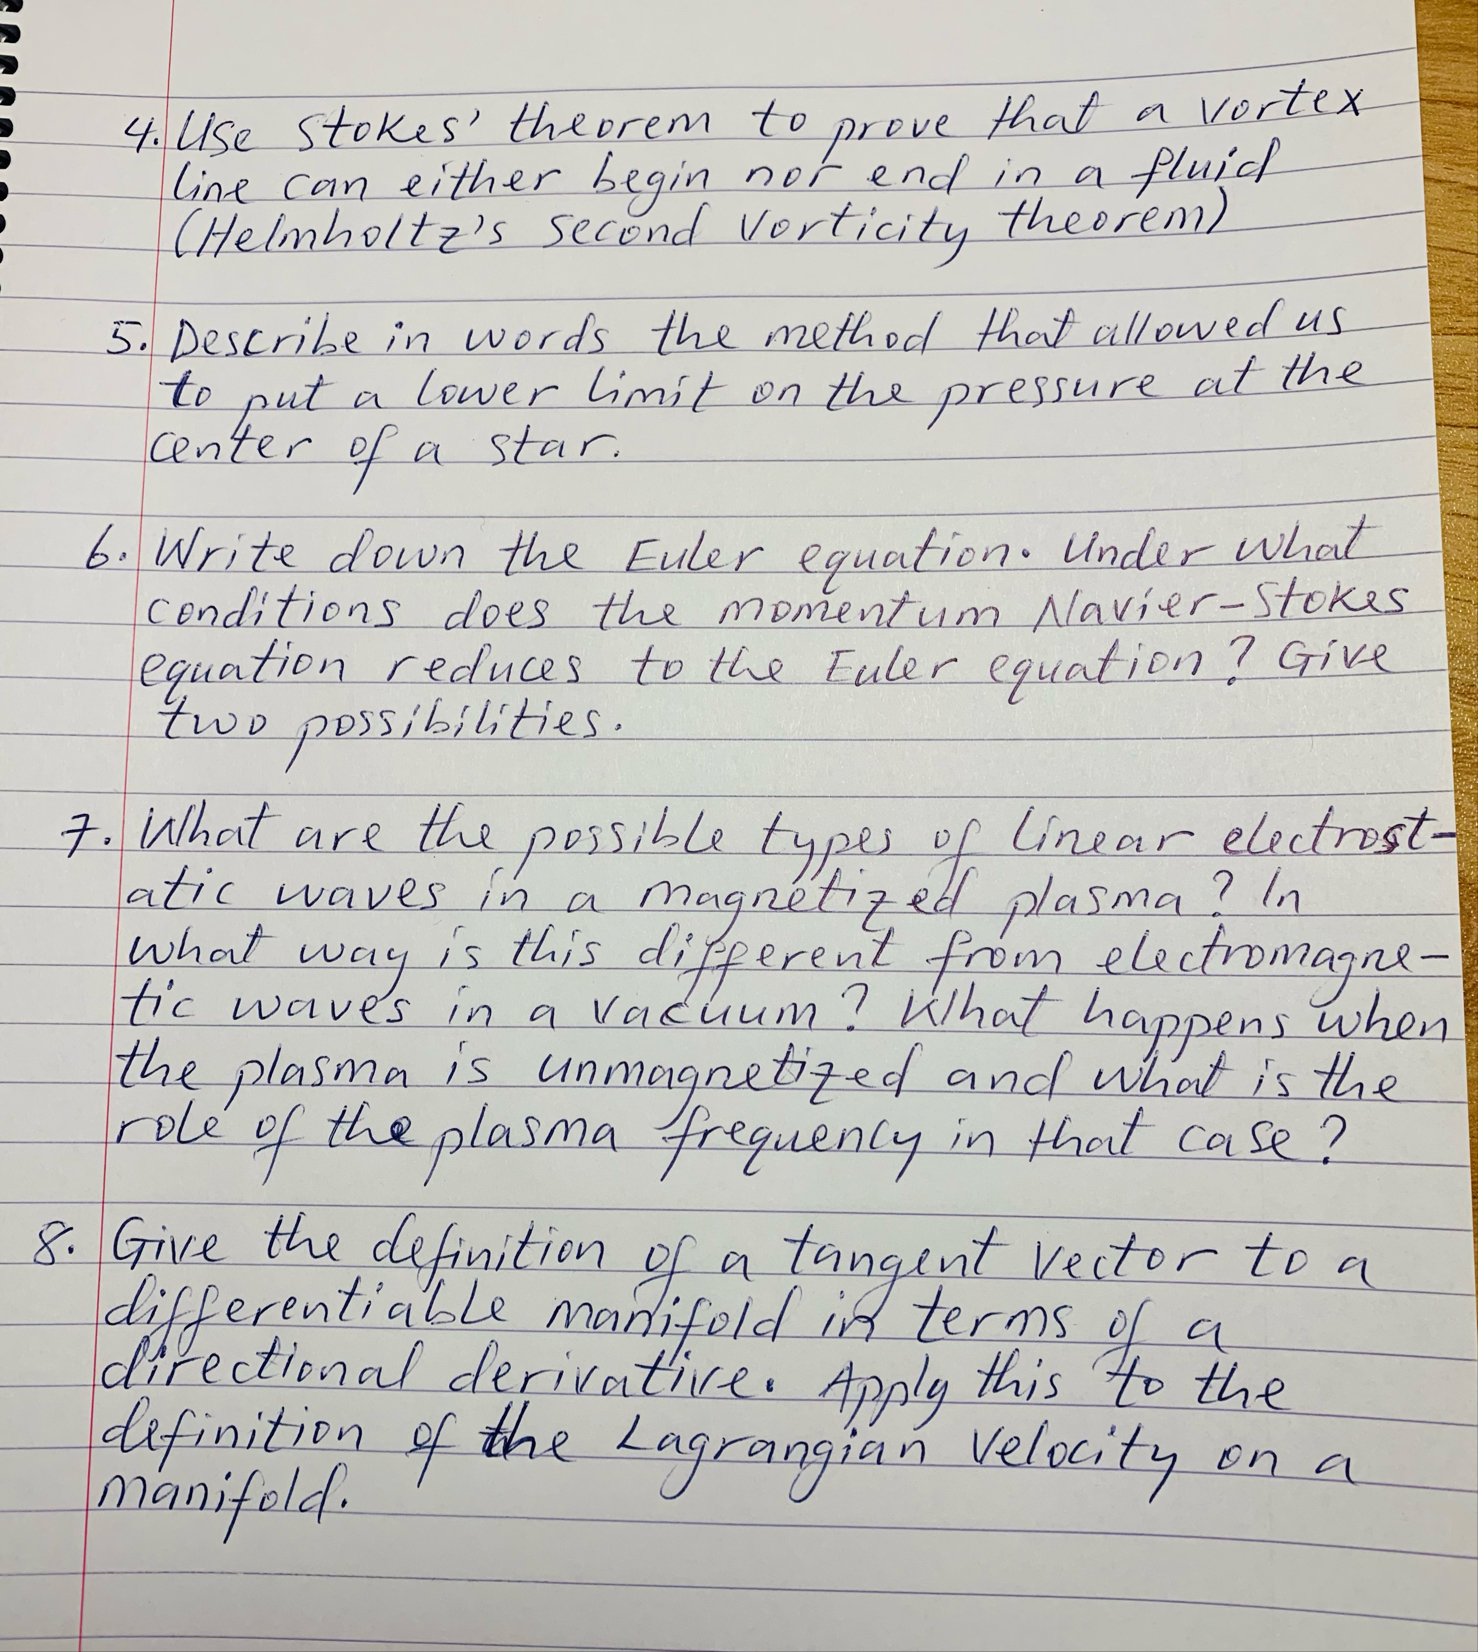 4. Use Stokes' theorem to prove that a vortex
line can either begin nor end in a fluid
(Helmholtz's second vorticity theorem)
5. Describe in words the method that allowed us
to put a lower limit on the pressure at the
center of a star.
6. Write down the Euler equation. Under what
conditions does the momentum Navier-Stokes
equation reduces to the Euler equation? Give
two possibilities.
7. What are the possible types of linear electrost-
atic waves in a magnetized plasma? In
what way is this different from electromagne-
tic waves in a vacuum? What happens when
the plasma is unmagnetized and what is the
role of the plasma frequency in that case?
8. Give the definition of a tangent vector to a
differentiable manifold in terms of a
directional derivative. Apply this to the
definition of the Lagrangian velocity on a
manifold.